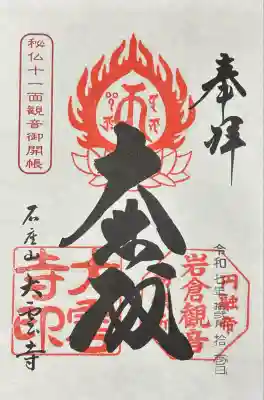 奉拝
令和七年拾弐月拾壱日
円融帝
岩倉観音
大悲殿
秘仏十一面観音御開帳
石座山大雲寺
大雲
寺印